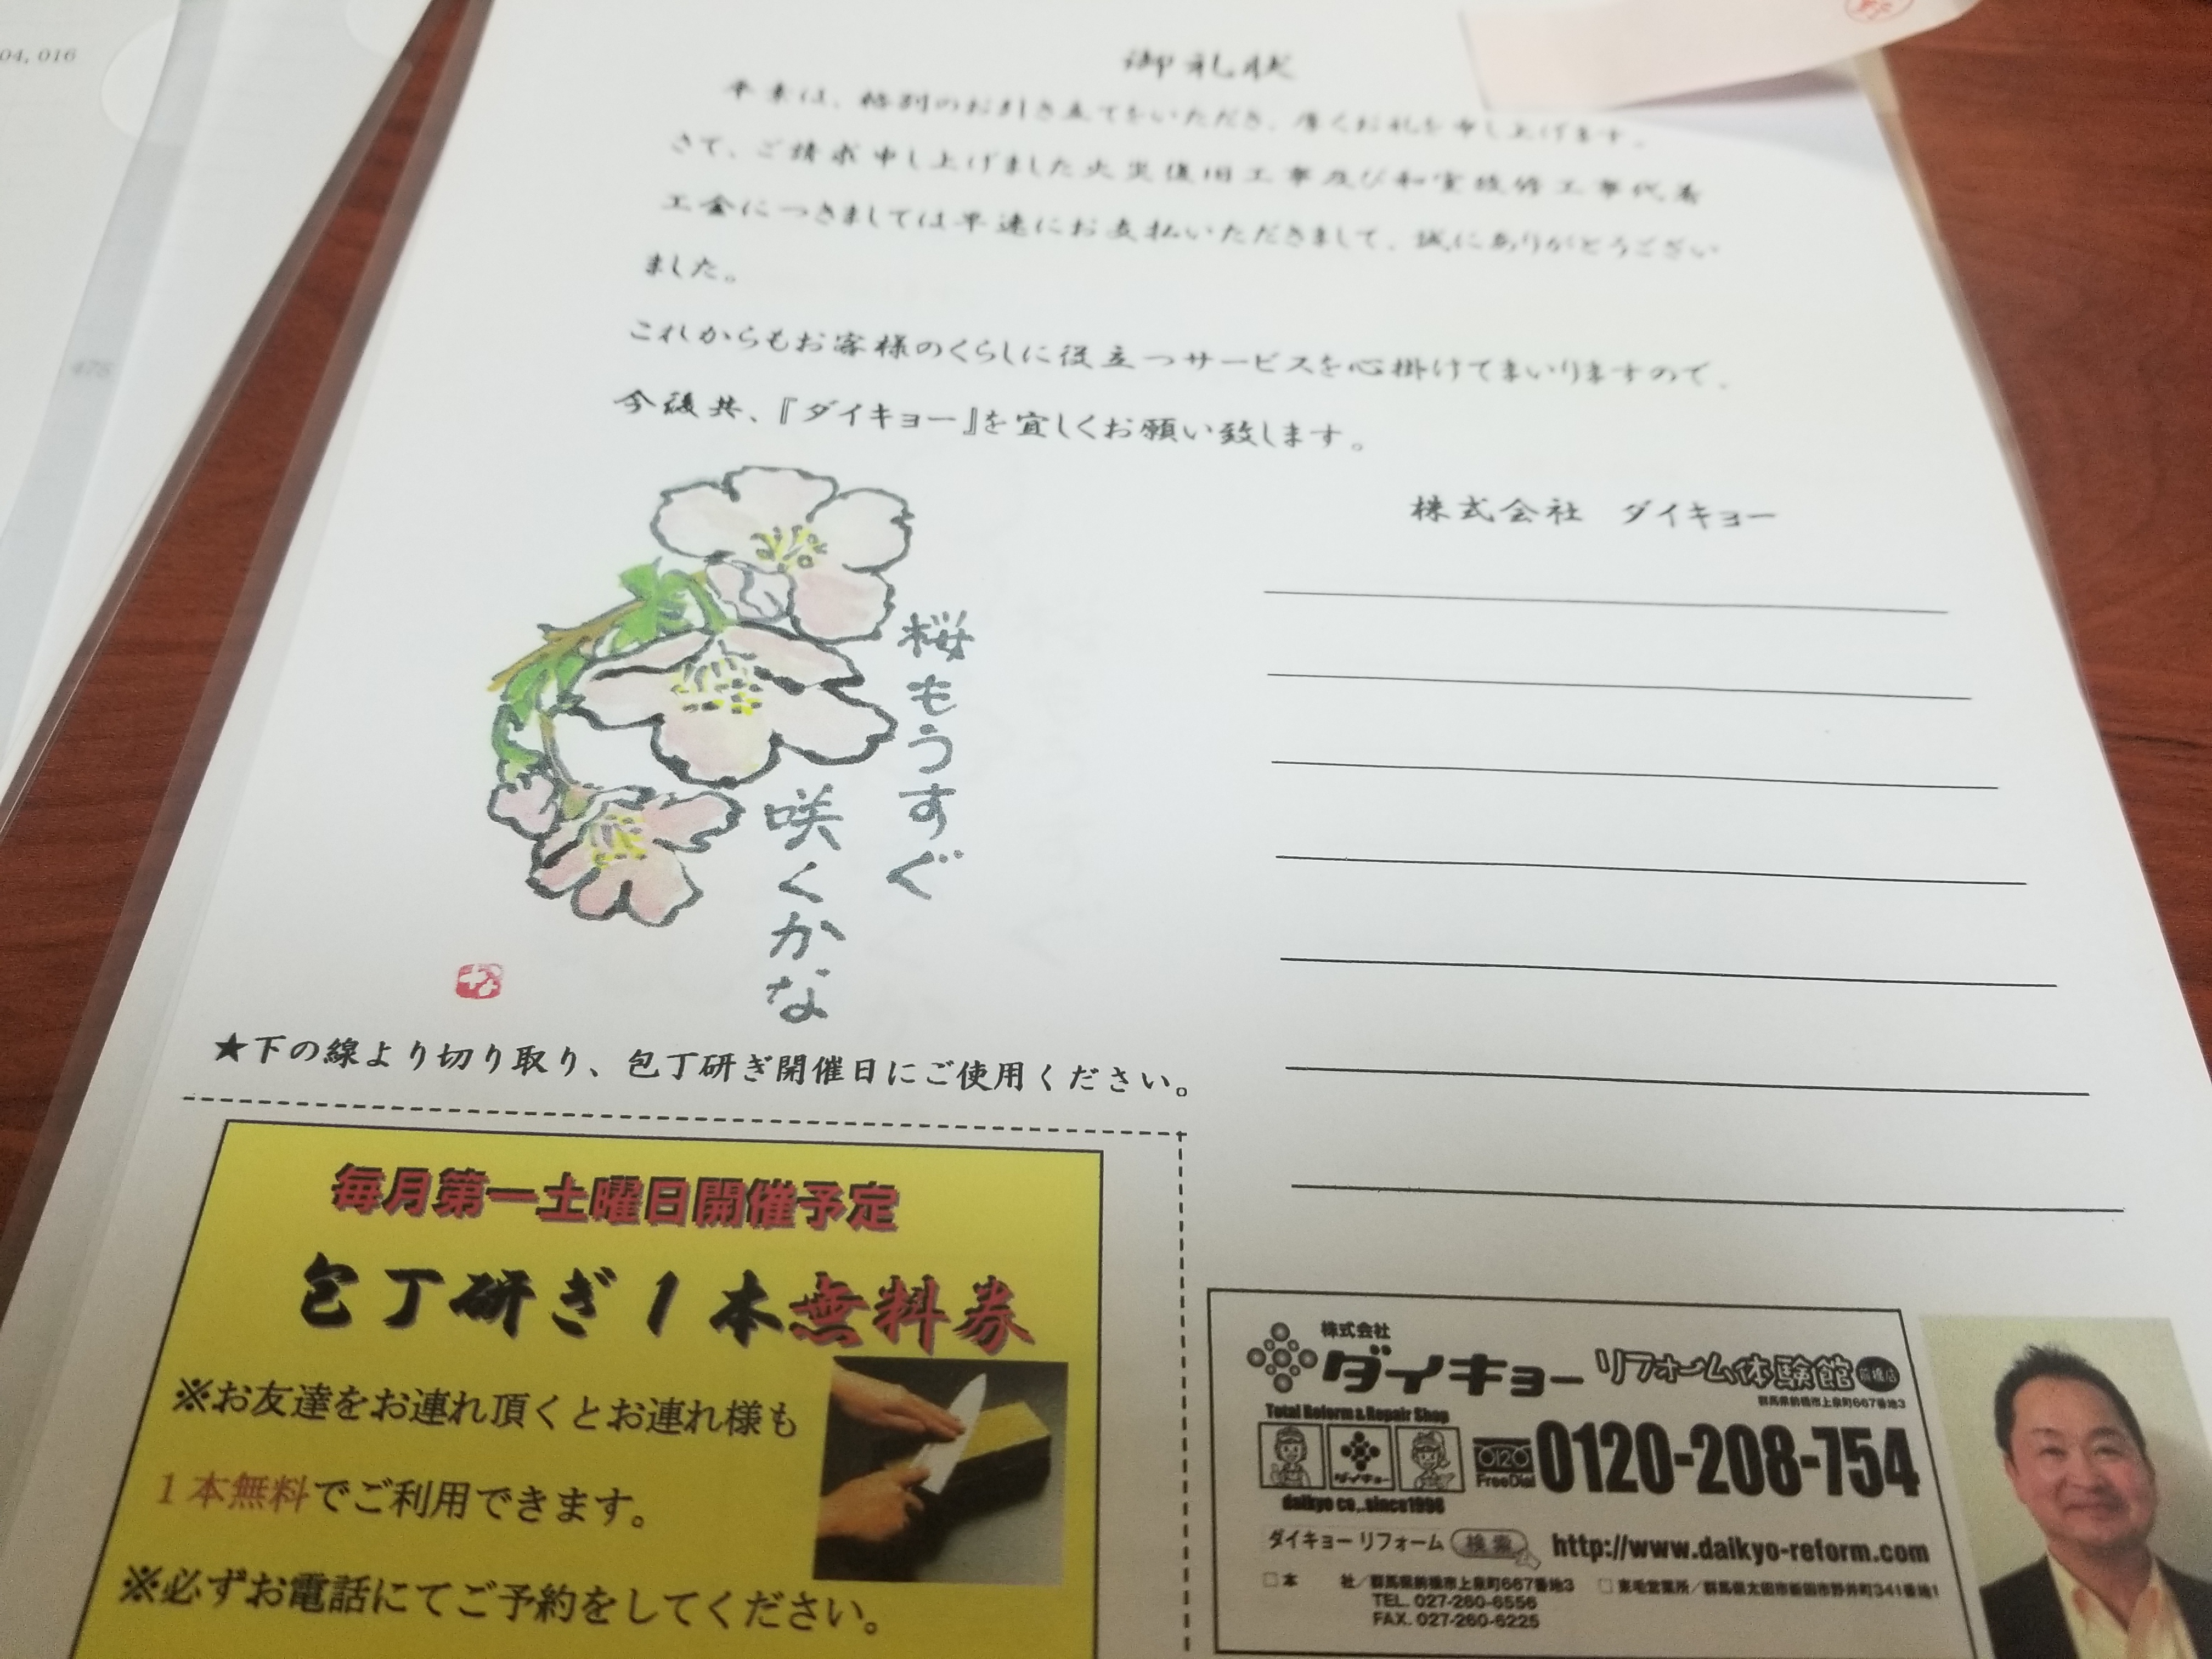 04, 016
475
御礼状
平素は、格別のお引き立てをいただき、厚くお礼を申し上げます。
さて、ご請求申し上げました火災復旧工事及び和室改修工事代着
工金につきましては早速にお支払いただきまして、誠にありがとうござい
ました。
これからもお客様のくらしに役立つサービスを心掛けてまいりますので、
今後共、『ダイキョー』を宜しくお願い致します。
株式会社 ダイキョー
桜もうすぐ
咲くかな
★下の線より切り取り、包丁研ぎ開催日にご使用ください。
毎月第一土曜日開催予定
包丁研ぎ1本無料券
※お友達をお連れ頂くとお連れ様も
1本無料でご利用できます。
※必ずお電話にてご予約をしてください。
株式会社
ダイキョー リフォーム体験館 前橋店
群馬県前橋市上泉町667番地3
Total Reform & Repair Shop
ダイキョー
daikyo co,.since1996
0120 FreeDial 0120-208-754
ダイキョー リフォーム 検索 http://www.daikyo-reform.com
□本 社/群馬県前橋市上泉町667番地3 □東毛営業所/群馬県太田市新田市野井町341番地1
TEL. 027-260-6556
FAX. 027-260-6225